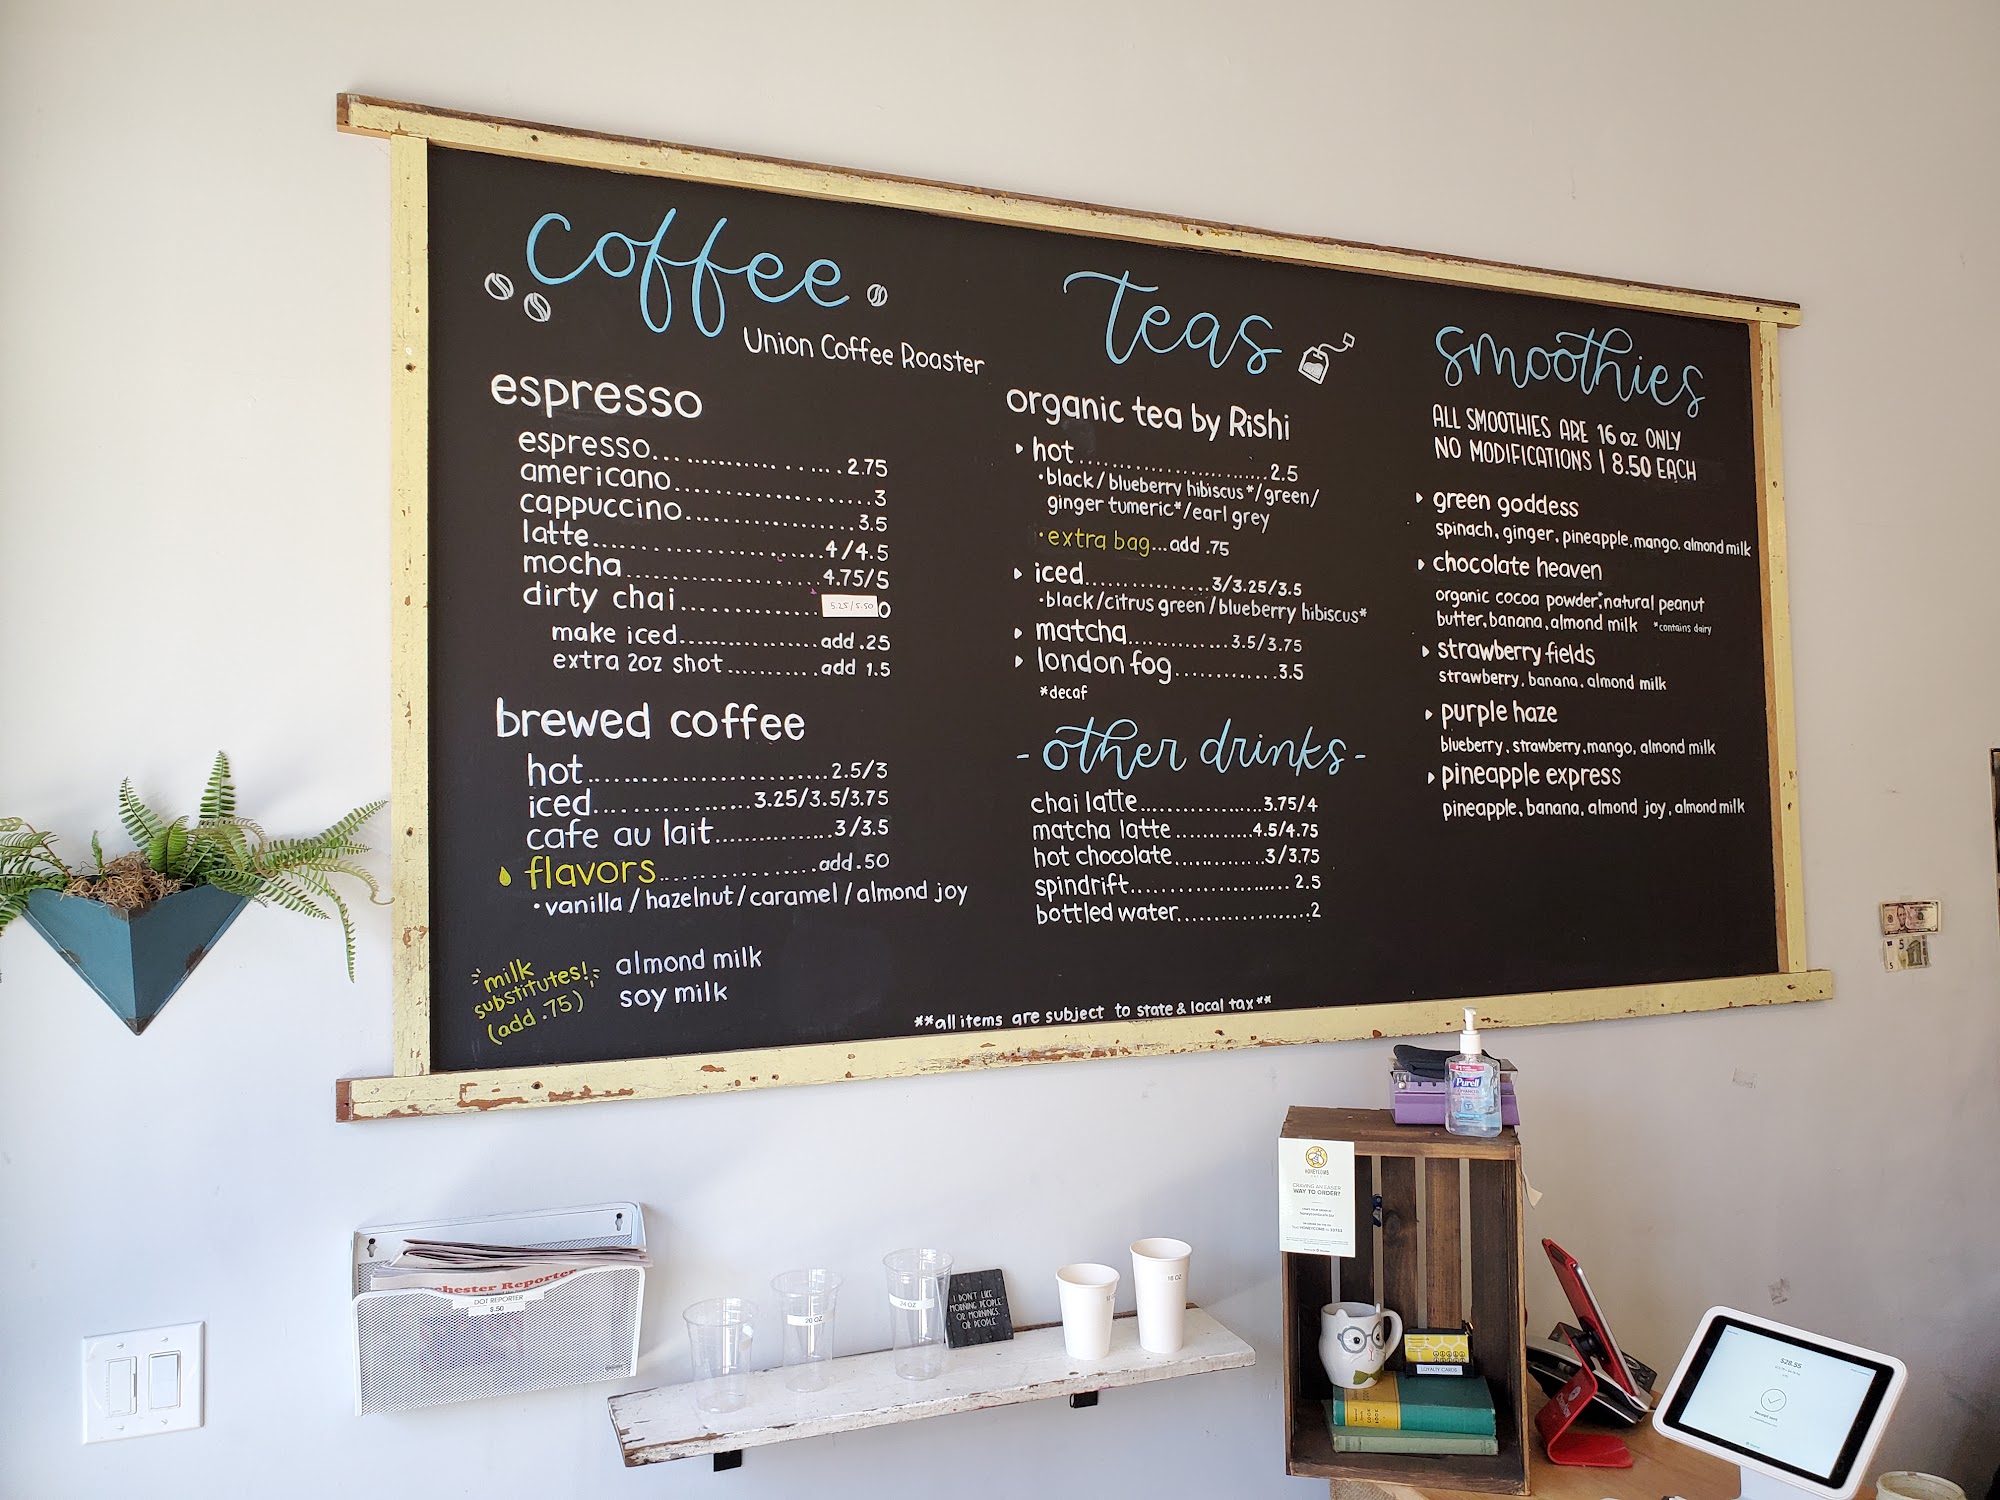 coffee
Union Coffee Roaster
espresso
espresso.....................2.75
americano....................3
cappuccino...................3.5
latte........................4/4.5
mocha........................4.75/5
dirty chai...................5.25/5.50 0
make iced....................add .25
extra 2oz shot...............add 1.5
brewed coffee
hot..........................2.5/3
iced.........................3.25/3.5/3.75
cafe au lait.................3/3.5
flavors......................add .50
•vanilla/hazelnut/caramel/almond joy
milk
substitutes!
(add .75)
almond milk
soy milk
teas
organic tea by Rishi
hot..........................2.5
•black/blueberry hibiscus*/green/
ginger tumeric*/earl grey
•extra bag...add .75
iced.........................3/3.25/3.5
•black/citrus green/blueberry hibiscus*
matcha.......................3.5/3.75
london fog...................3.5
*decaf
-other drinks-
chai latte...................3.75/4
matcha latte.................4.5/4.75
hot chocolate................3/3.75
spindrift....................2.5
bottled water................2
**all items are subject to state & local tax**
smoothies
ALL SMOOTHIES ARE 16 oz ONLY
NO MODIFICATIONS | 8.50 EACH
green goddess
spinach, ginger, pineapple, mango, almond milk
chocolate heaven
organic cocoa powder*, natural peanut
butter, banana, almond milk *contains dairy
strawberry fields
strawberry, banana, almond milk
purple haze
blueberry, strawberry, mango, almond milk
pineapple express
pineapple, banana, almond joy, almond milk
5
5
Purell
HONEYCOMB
CRAVING AN EASIER
WAY TO ORDER?
chester Reporter
DOT REPORTER
$.50
20 OZ
24 OZ
I DON'T LIKE
MORNING PEOPLE.
OR MORNINGS.
OR PEOPLE.
16 OZ
LOYALTY CARDS
COOK
BOOK
$28.55